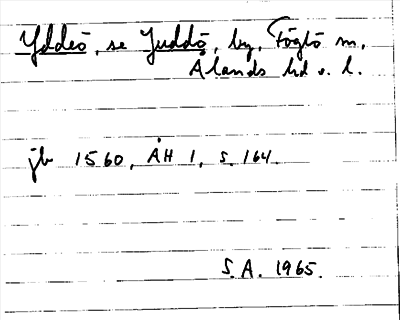 Yddeö, se Juddö, by, Föglö m,
Ålands hd o. l.
jb 1560, ÅH 1, s. 164.
S.A. 1965.